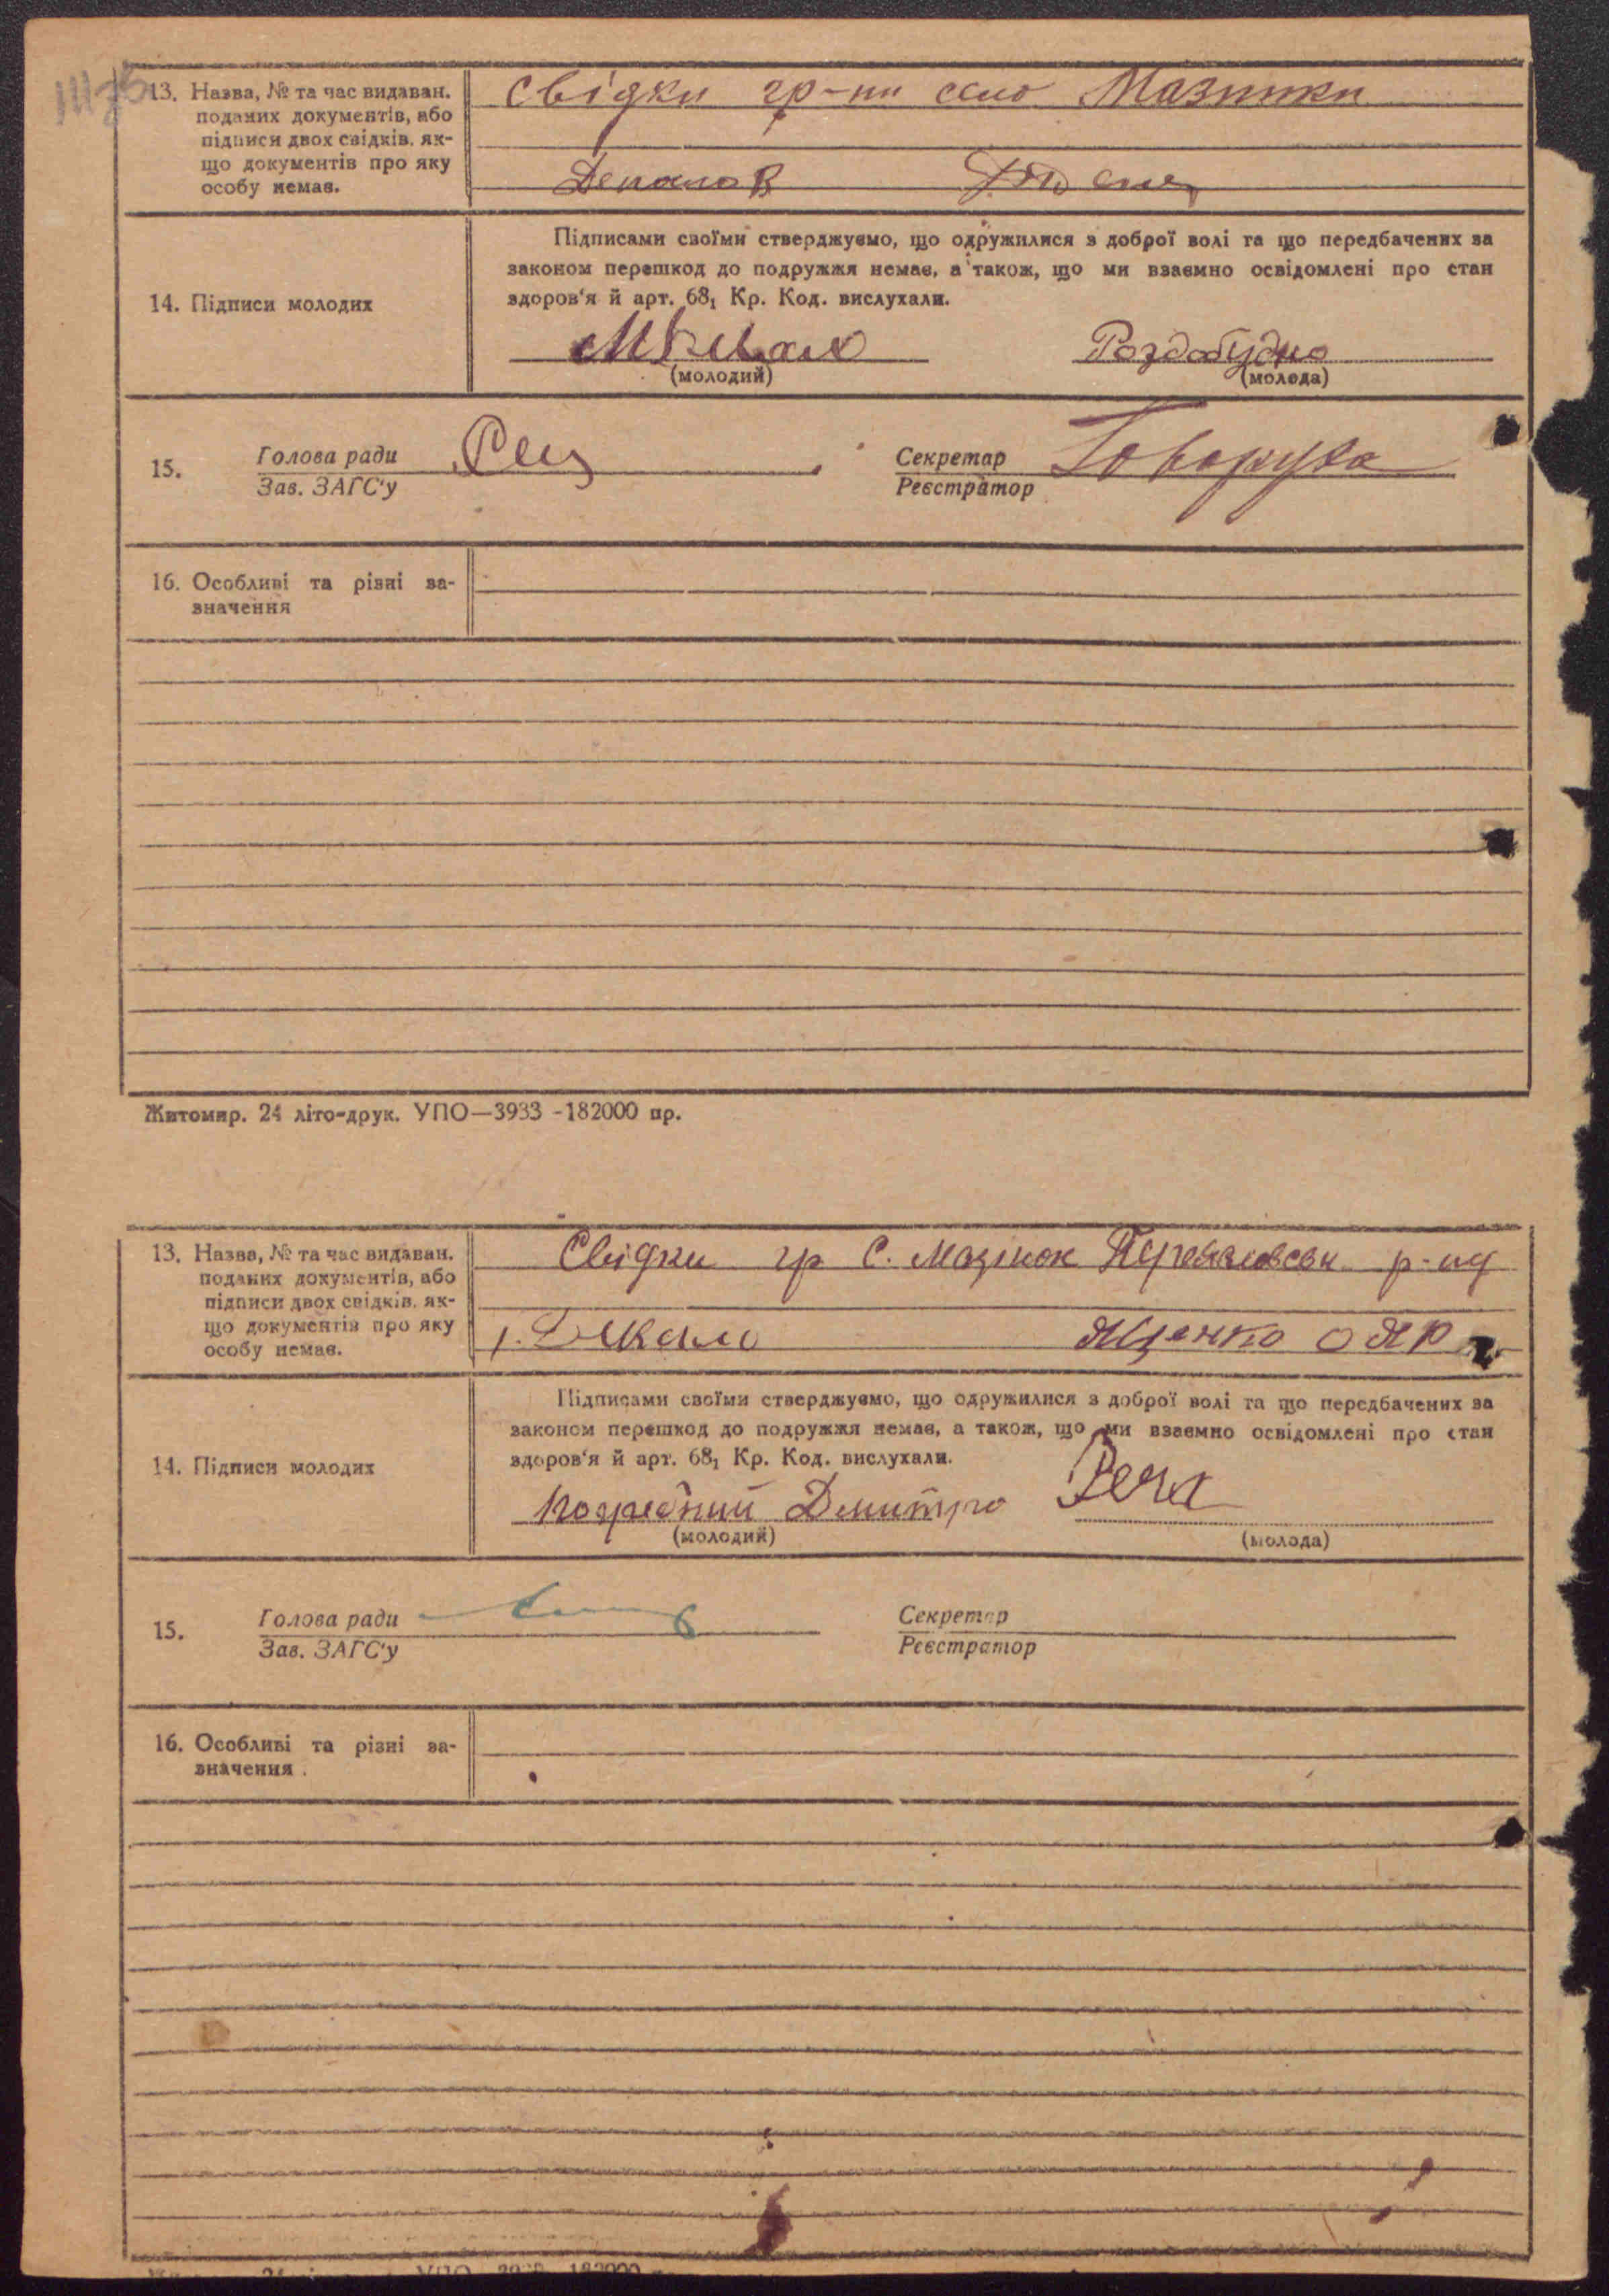 13. Назва, № та час видаван.
поданих документів, або
підписи двох свідків, як-
що документів про яку
особу немає.
свідки гр-ни село Мазинки
14. Підписи молодих
Підписами своїми стверджуємо, що одружилися з доброї волі та що передбачених за
законом перешкод до подружжя немає, а також, що ми взаємно освідомлені про стан
здоров'я й арт. 68₁ Кр. Код. вислухали.
Роздобудко
(молодий) (молода)
15. Голова ради Секретар Говоруха
Зав. ЗАГС'у Реєстратор
16. Особливі та різні за-
значення
Житомир. 24 літо-друк. УПО—3933 -182000 пр.
13. Назва, № та час видаван.
поданих документів, або
підписи двох свідків, як-
що документів про яку
особу немає.
Свідки гр с. Мазінок р-ну
Дикало Яценко
14. Підписи молодих
Підписами своїми стверджуємо, що одружилися з доброї волі та що передбачених за
законом перешкод до подружжя немає, а також, що ми взаємно освідомлені про стан
здоров'я й арт. 68₁ Кр. Код. вислухали.
Погрібний Дмитро Реча
(молодий) (молода)
15. Голова ради Секретар
Зав. ЗАГС'у Реєстратор
16. Особливі та різні за-
значення